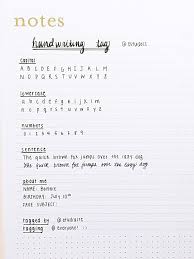 notes
handwriting tag
capital
A B C D E F G H I J K L M
N O P Q R S T U V W X Y Z
lowercase
a b c d e f g h i j k l m
n o p q r s t u v w x y z
numbers
0 1 2 3 4 5 6 7 8 9
sentence
The quick brown fox jumps over the lazy dog
the quick brown fox jumps over the lazy dog
about me
NAME:
BIRTHDAY: JULY
FAVE SUBJECT:
tagged by @
tagging @ everyone!